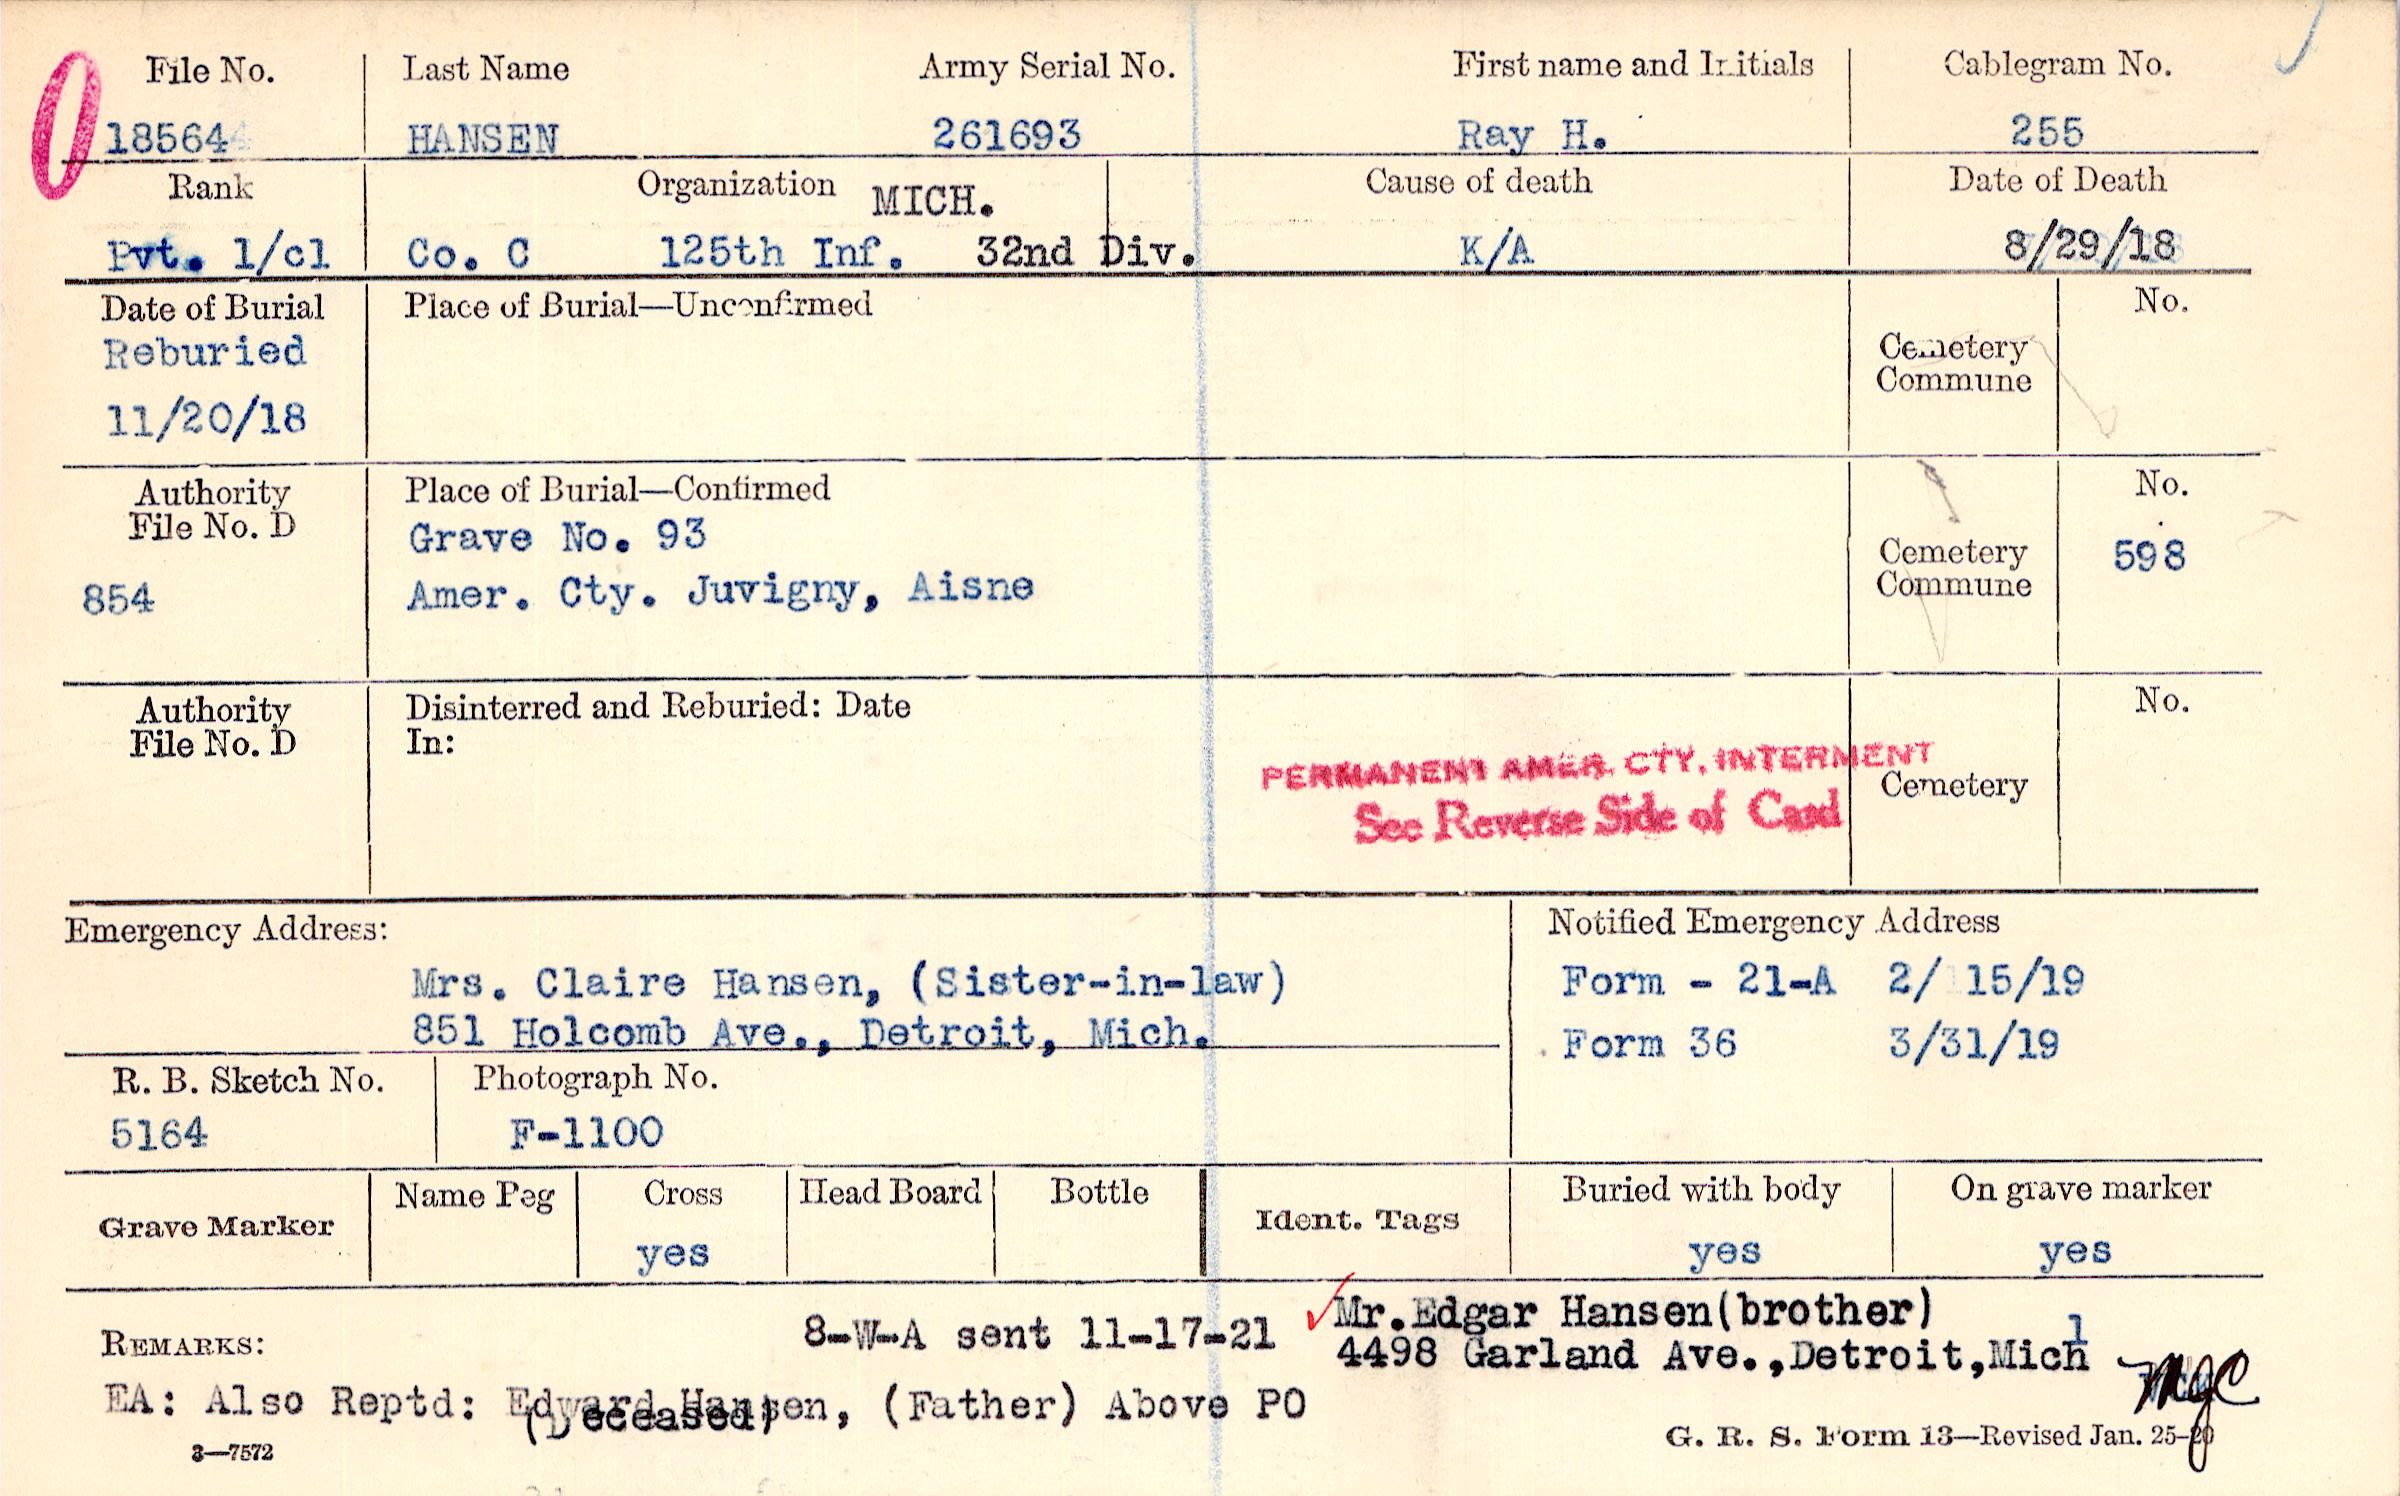 File No. Last Name Army Serial No. First name and Initials Cablegram No.
18564 HANSEN 261693 Ray H. 255
Rank Organization MICH. Cause of death Date of Death
Pvt. 1/cl Co. C 125th Inf. 32nd Div. K/A 8/29/18
Date of Burial Place of Burial—Unconfirmed No.
Reburied Cemetery
Commune
11/20/18
Authority Place of Burial—Confirmed No.
File No. D Grave No. 93
Cemetery 598
854 Amer. Cty. Juvigny, Aisne Commune
Authority Disinterred and Reburied: Date No.
File No. D In:
PERMANENT AMER. CTY. INTERMENT
Cemetery
See Reverse Side of Card
Emergency Address: Notified Emergency Address
Mrs. Claire Hansen, (Sister-in-law) Form - 21-A 2/ 15/19
851 Holcomb Ave., Detroit, Mich. Form 36 3/31/19
R. B. Sketch No. Photograph No.
5164 F-1100
Grave Marker Name Peg Cross Head Board Bottle Ident. Tags Buried with body On grave marker
yes yes yes
REMARKS: 8-W-A sent 11-17-21 Mr.Edgar Hansen(brother)
4498 Garland Ave.,Detroit,Mich 1
EA: Also Reptd: Edward Hansen, (Father) Above PO MJC
(Deceased)
3—7572 G. R. S. Form 13—Revised Jan. 25-20